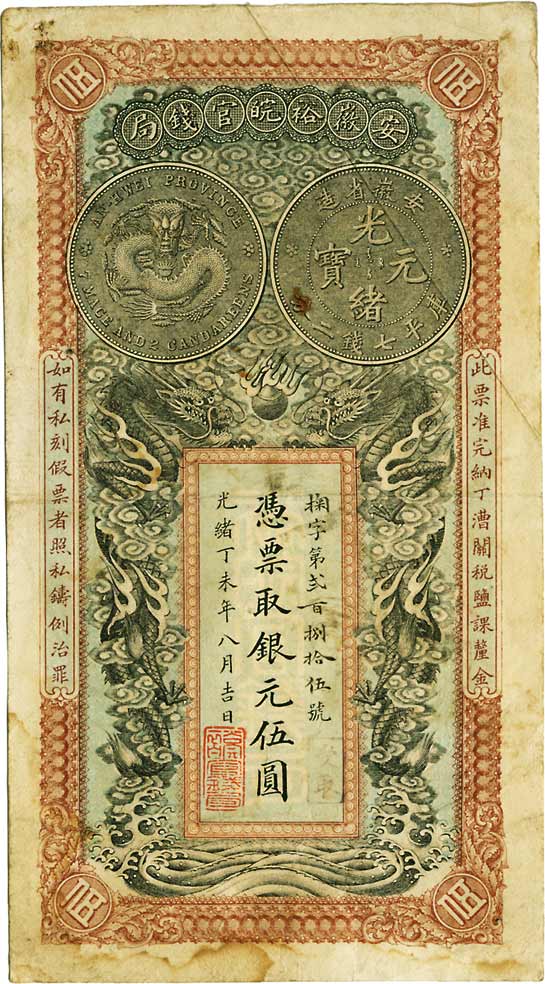 安徽裕皖官錢局
AN-HWEI PROVINCE
7 MACE AND 2 CANDAREENS
安徽省造
光緒元寶
庫平七錢二分
此票准完納丁漕關稅鹽課釐金
掬字第貳百捌拾伍號
憑票取銀元伍圓
光緒丁未年八月吉日
如有私刻假票者照私鑄例治罪